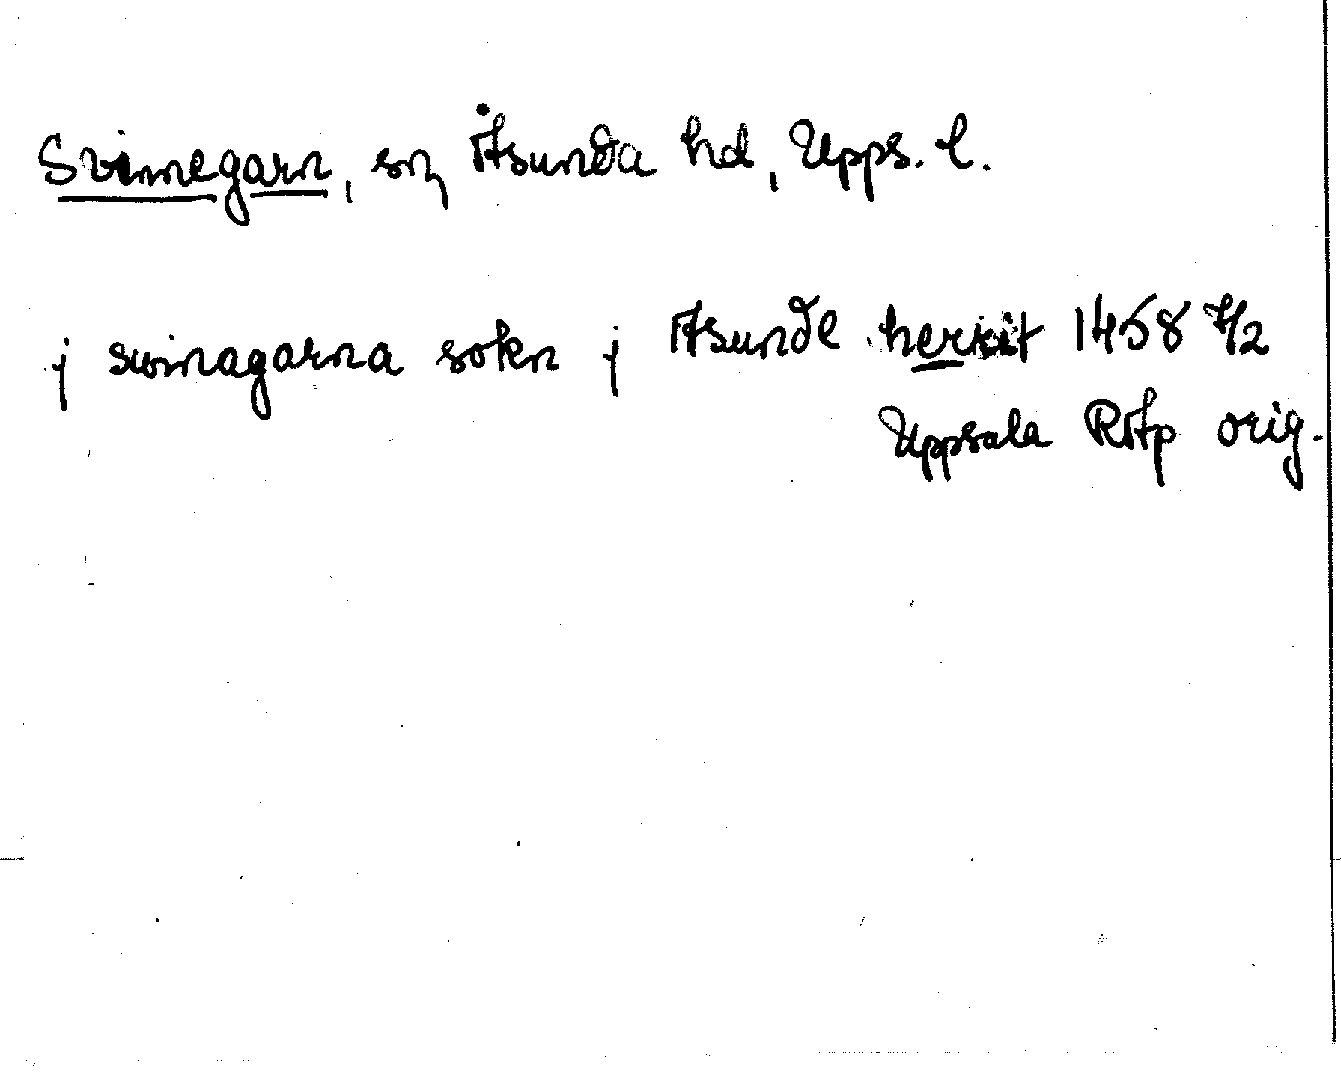 Svinnegarn, sn, Åsunda hd, Upps. l.
j swinagarna sokn j Asunde herrit 1458 4/2
Uppsala RAp orig.